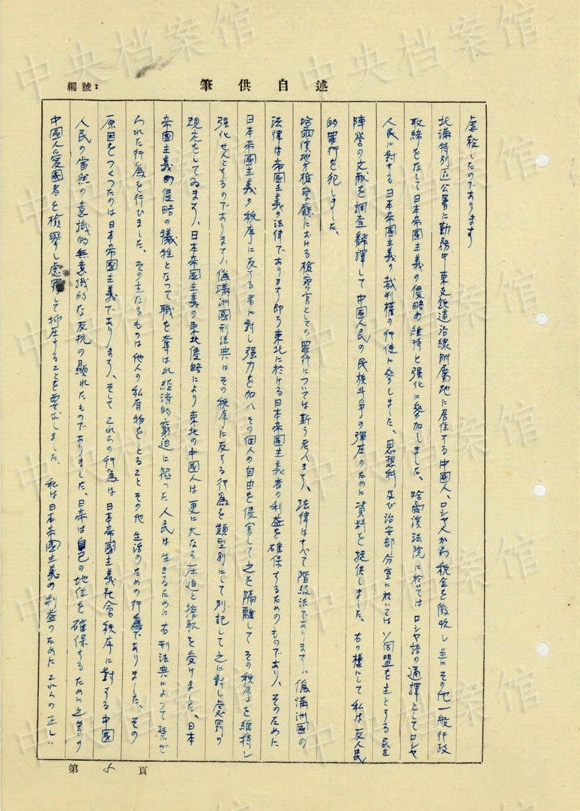 中央档案馆
編號：
筆供自述
虐殺したのであります
北満特別区公署に勤務中 東支鉄道沿線附属地に居住する中国人、ロシヤ人から税金を徴收し 並にその他一般行政
取締をなして日本帝国主義の侵略の維持と强化に参加しました。哈爾濱法院に於ては ロシヤ語の通譯としてロシヤ
人民に対する日本帝国主義の裁判権の行使に参しました。思想科及び治安部分室に於いては ソ同盟を主とする民主
陣営の文献を調査飜譯して 中国人民の民族斗争の弾圧のために資料を提供しました。右の様にして 私は反人民
的罪行を犯しました。
哈爾濱地方檢察廳における檢察官としての罪行については斯う考へます、法律はすべて階級法であります、偽満洲国の
法律は帝国主義の法律であります 即ち東北に於ける日本帝国主義者の利益を確保するためのものであり、そのために
日本帝国主義の秩序に反する者に対し强力を加へ その個人の自由を侵害して之を隔離して その秩序を維持し
强化せんとするのであります、偽満洲国刑法典はその秩序に反する行為を類型別にして列記して之に対し處罰
規定をしてゐます、日本帝国主義の東北侵略により 東北の中国人は 更に大なる圧迫と搾取を受けました、日本
帝国主義の侵略の犠牲となつて職を奪はれ経済的窮迫に陥つた 人民は 生きるために右刑法典によつて 禁ぜ
られた行為を行ひました、その主なるものは他人の私有物をとること その他 生活のための行為でありました、その
原因をつくつたのは日本帝国主義であります、そして これらの行為は 日本帝国主義社会秩序に対する 中国
人民の當然の意識的無意識的な反抗の顕れたものでありました、日帝は自己の地位を確保するために之等の
中国人民愛国者を檢挙し處罰して抑圧することを要求しました、私は日本帝国主義の利益のために これらの正しい
第 5 頁